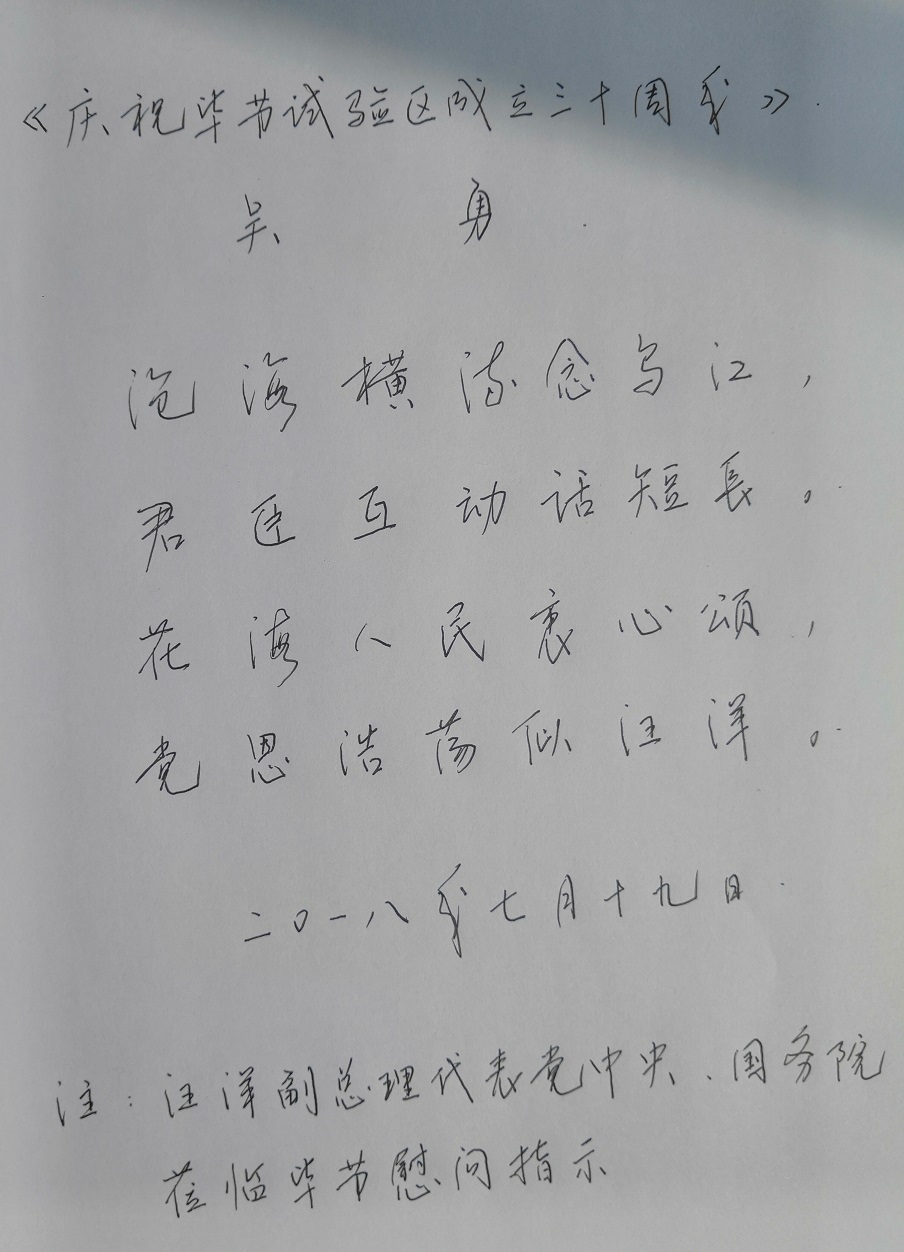 《庆祝毕节试验区成立三十周年》
吴勇
沧海横流念乌江，
君臣互动话短長。
花海人民衷心颂，
党恩浩荡似汪洋。
二〇一八年七月十九日
注：汪洋副总理代表党中央、国务院
莅临毕节慰问指示